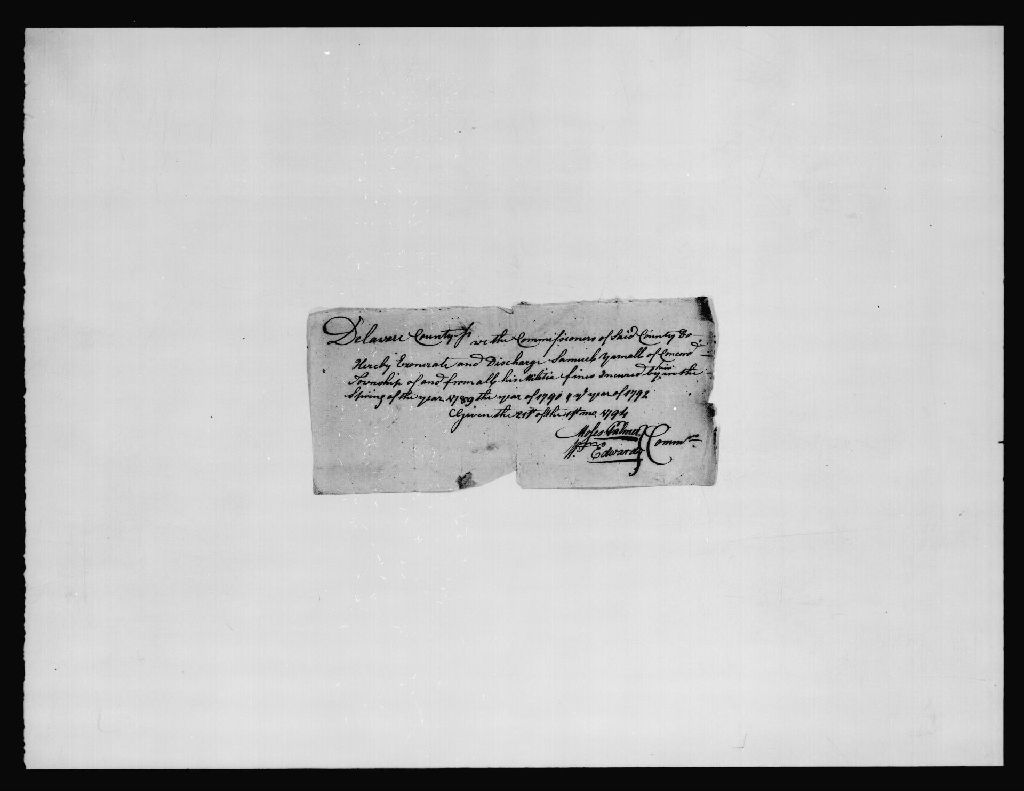 Delaware County Ss we the Commissioners of Said County Do
Hereby Exonerate and Discharge Samuel Yarnall of Concord
Township of and from all his Militia fines Incured by him in the
Spring of the year 1789 the year of 1790 & yᵉ year of 1791
Given the 21st of the 1st mo 1794
Moses Palmer
Wm Edwards Commrs